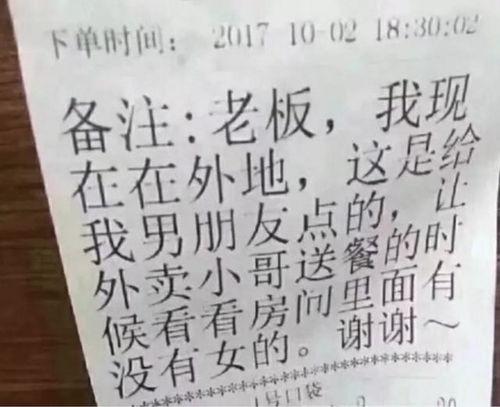 下单时间： 2017-10-02 18:30:02
备注:老板，我现
在在外地，这是给
我男朋友点的，让
外卖小哥送餐的时
候看看房间里面有
没有女的。谢谢～
********************
1号口袋